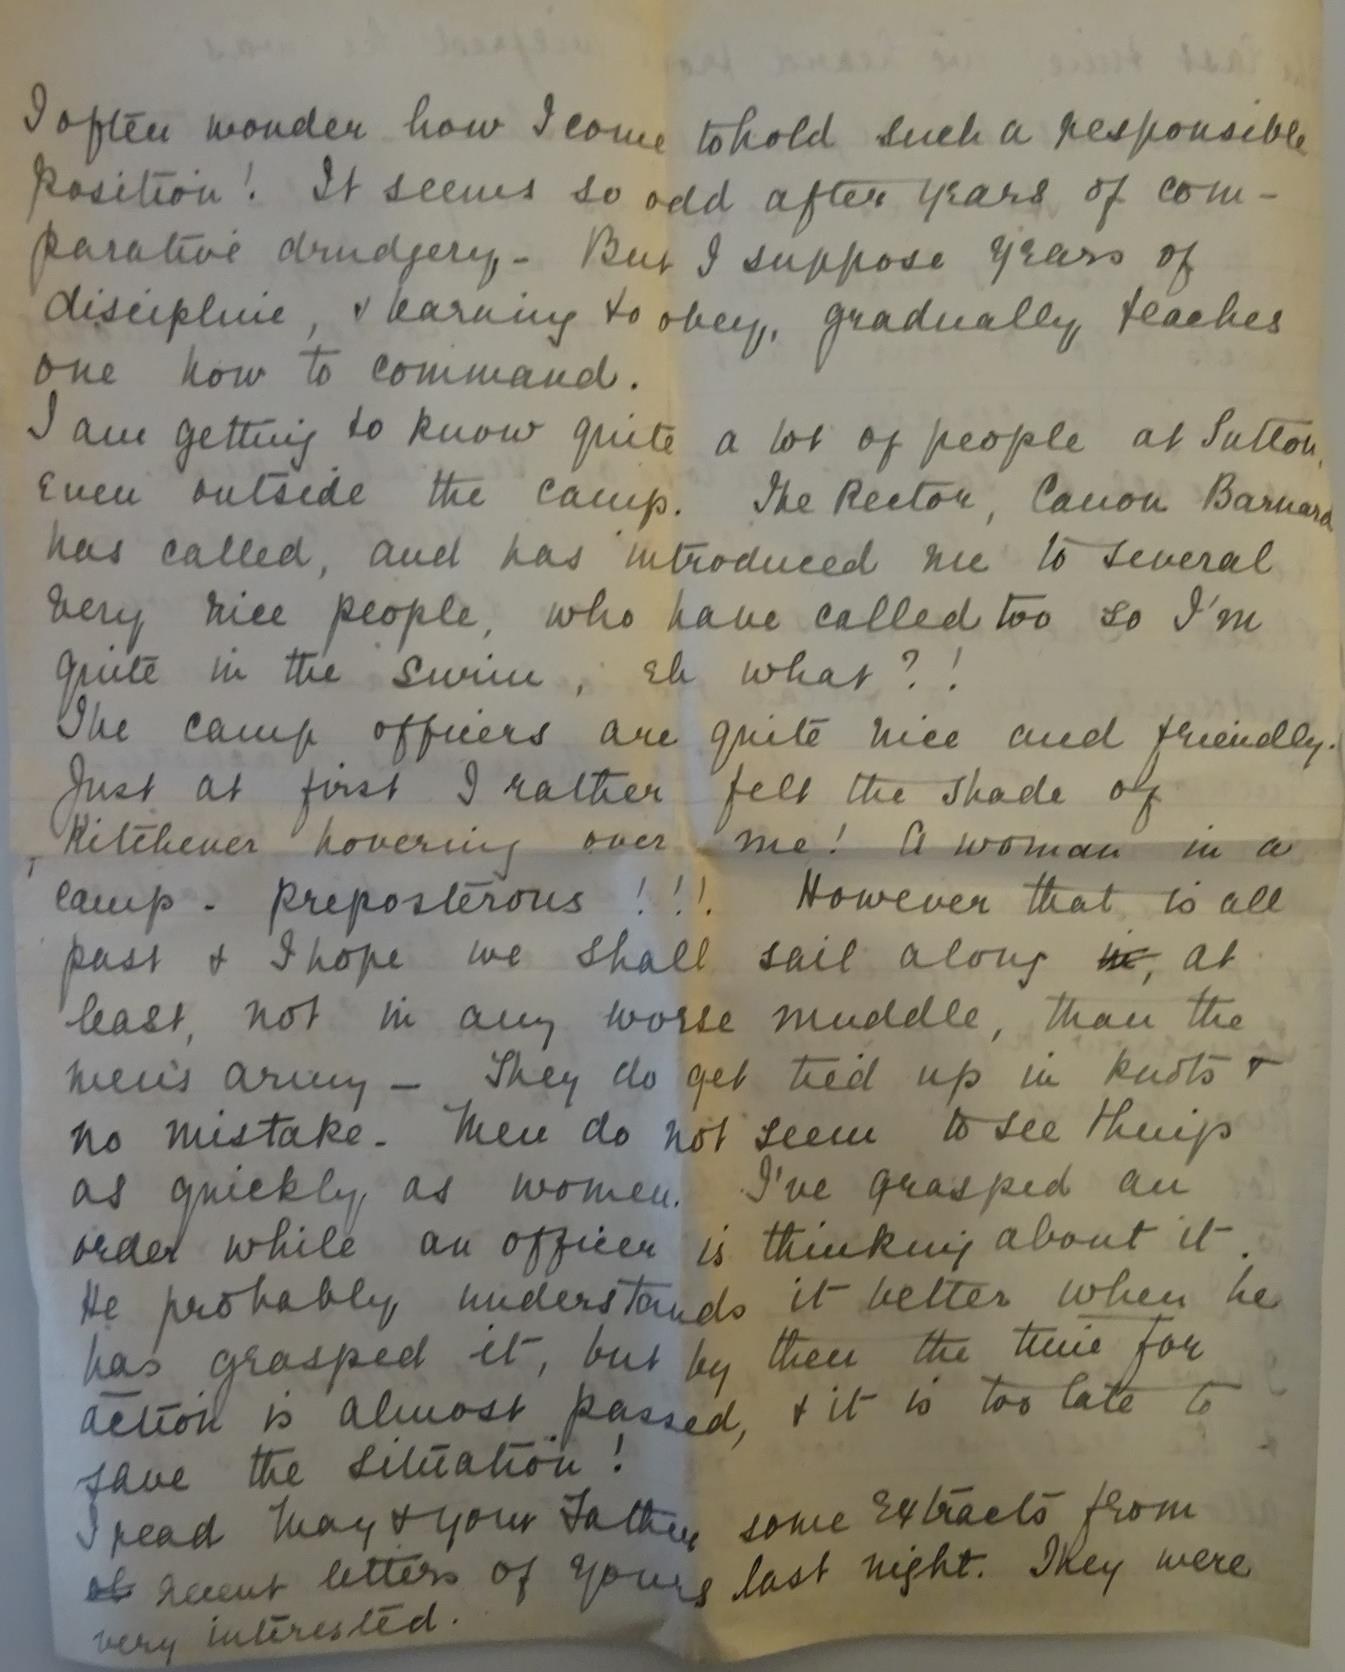 I often wonder how I come to hold such a responsible
position! It seems so odd after years of com-
parative drudgery, - But I suppose years of
discipline, & learning to obey, gradually teaches
one how to command.
I am getting to know quite a lot of people at Sutton,
even outside the camp. The Rector, Canon Barnard
has called, and has introduced me to several
very nice people, who have called too so I'm
quite in the swim, eh what?!
The camp officers are quite nice and friendly.
Just at first I rather felt the shade of
Kitchener hovering over me! A woman in a
camp - preposterous !!! However that is all
past & I hope we shall sail along in, at
least, not in any worse muddle, than the
men's army - They do get tied up in knots &
no mistake - Men do not seem to see things
as quickly, as women. I've grasped an
order while an officer is thinking about it.
He probably, understands it better when he
has grasped it, but by then the time for
action is almost passed, & it is too late to
save the situation!
I read May & your Father some extracts from
recent letters of yours last night. They were
very interested.